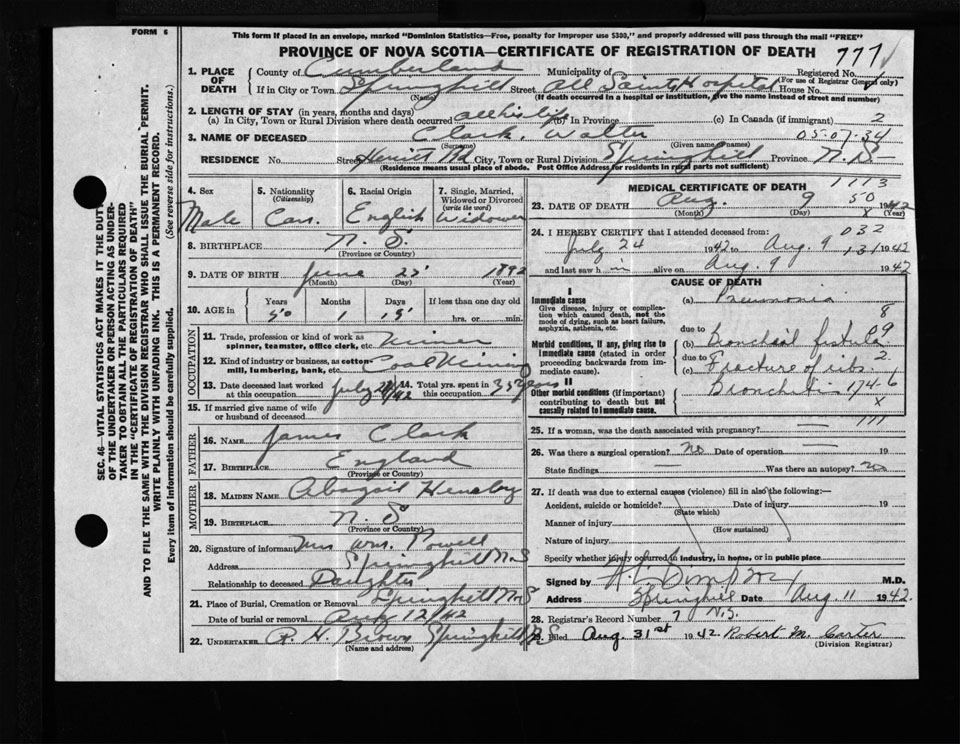 FORM 6
This form if placed in an envelope, marked "Dominion Statistics—Free, penalty for improper use $300," and properly addressed will pass through the mail "FREE"
PROVINCE OF NOVA SCOTIA—CERTIFICATE OF REGISTRATION OF DEATH
777
1. PLACE OF DEATH
County of Cumberland Municipality of Registered No.
(For use of Registrar General only)
If in City or Town Springhill Street All Saints Hospital House No.
(Name) (If death occurred in a hospital or institution, give the name instead of street and number)
2. LENGTH OF STAY (in years, months and days)
(a) In City, Town or Rural Division where death occurred all his life (b) In Province (c) In Canada (if immigrant) 2
3. NAME OF DECEASED Clark, Walter 05-07-34
(Surname) (Given name or names)
RESIDENCE No. Street Herritt Rd City, Town or Rural Division Springhill Province N.S.
(Residence means usual place of abode. Post Office Address for residents in rural parts not sufficient)
4. Sex
Male
5. Nationality
(Citizenship)
Can.
6. Racial Origin
English
7. Single, Married, Widowed or Divorced
(write the word)
Widower
8. BIRTHPLACE N. S.
(Province or Country)
9. DATE OF BIRTH June 25 1892
(Month) (Day) (Year)
10. AGE in
Years Months Days If less than one day old
50 1 15 hrs. or min.
11. Trade, profession or kind of work as spinner, teamster, office clerk, etc. Miner
12. Kind of industry or business, as cotton-mill, lumbering, bank, etc. Coal Mining
13. Date deceased last worked at this occupation July /42 14. Total yrs. spent in this occupation 35 years
15. If married give name of wife or husband of deceased
FATHER
16. NAME James Clark
17. BIRTHPLACE England
(Province or Country)
MOTHER
18. MAIDEN NAME Abagail Hensby
19. BIRTHPLACE N. S
(Province or Country)
20. Signature of informant Mrs Wm. Powell
Address Springhill N.S
Relationship to deceased Daughter
21. Place of Burial, Cremation or Removal Springhill N.S
Date of burial or removal Aug 12/42
22. UNDERTAKER R. H. Brown Springhill N.S
(Name and address)
MEDICAL CERTIFICATE OF DEATH 1113
23. DATE OF DEATH Aug. 9 50 1942
(Month) (Day) x (Year)
24. I HEREBY CERTIFY that I attended deceased from: 032
July 24 1942 to Aug. 9 131 1942
and last saw h im alive on Aug. 9 1942
CAUSE OF DEATH
I
Immediate cause
Give disease, injury or complication which caused death, not the mode of dying, such as heart failure, asphyxia, asthenia, etc.
(a) Pneumonia 8
due to
Morbid conditions, if any, giving rise to immediate cause (stated in order proceeding backwards from immediate cause).
(b) Bronchial fistula 9
due to 2
(c) Fracture of ribs.
II
Other morbid conditions (if important) contributing to death but not causally related to immediate cause.
Bronchitis 174-6
x
25. If a woman, was the death associated with pregnancy? — 111
26. Was there a surgical operation? no Date of operation — 19
State findings — Was there an autopsy? no
27. If death was due to external causes (violence) fill in also the following:—
Accident, suicide or homicide? Date of injury 19
(State which)
Manner of injury
(How sustained)
Nature of injury
Specify whether injury occurred in industry, in home, or in public place
Signed by Simpson M.D.
Address Springhill Date Aug 11 1942.
28. Registrar's Record Number 7 N.S.
29. Filed Aug. 31st 1942. Robert M. Carter
(Division Registrar)
SEC. 46—VITAL STATISTICS ACT MAKES IT THE DUTY
OF THE UNDERTAKER OR PERSON ACTING AS UNDER-
TAKER TO OBTAIN ALL THE PARTICULARS REQUIRED
IN THE "CERTIFICATE OF REGISTRATION OF DEATH"
AND TO FILE THE SAME WITH THE DIVISION REGISTRAR WHO SHALL ISSUE THE BURIAL PERMIT.
WRITE PLAINLY WITH UNFADING INK. THIS IS A PERMANENT RECORD.
Every item of information should be carefully supplied. (See reverse side for instructions.)